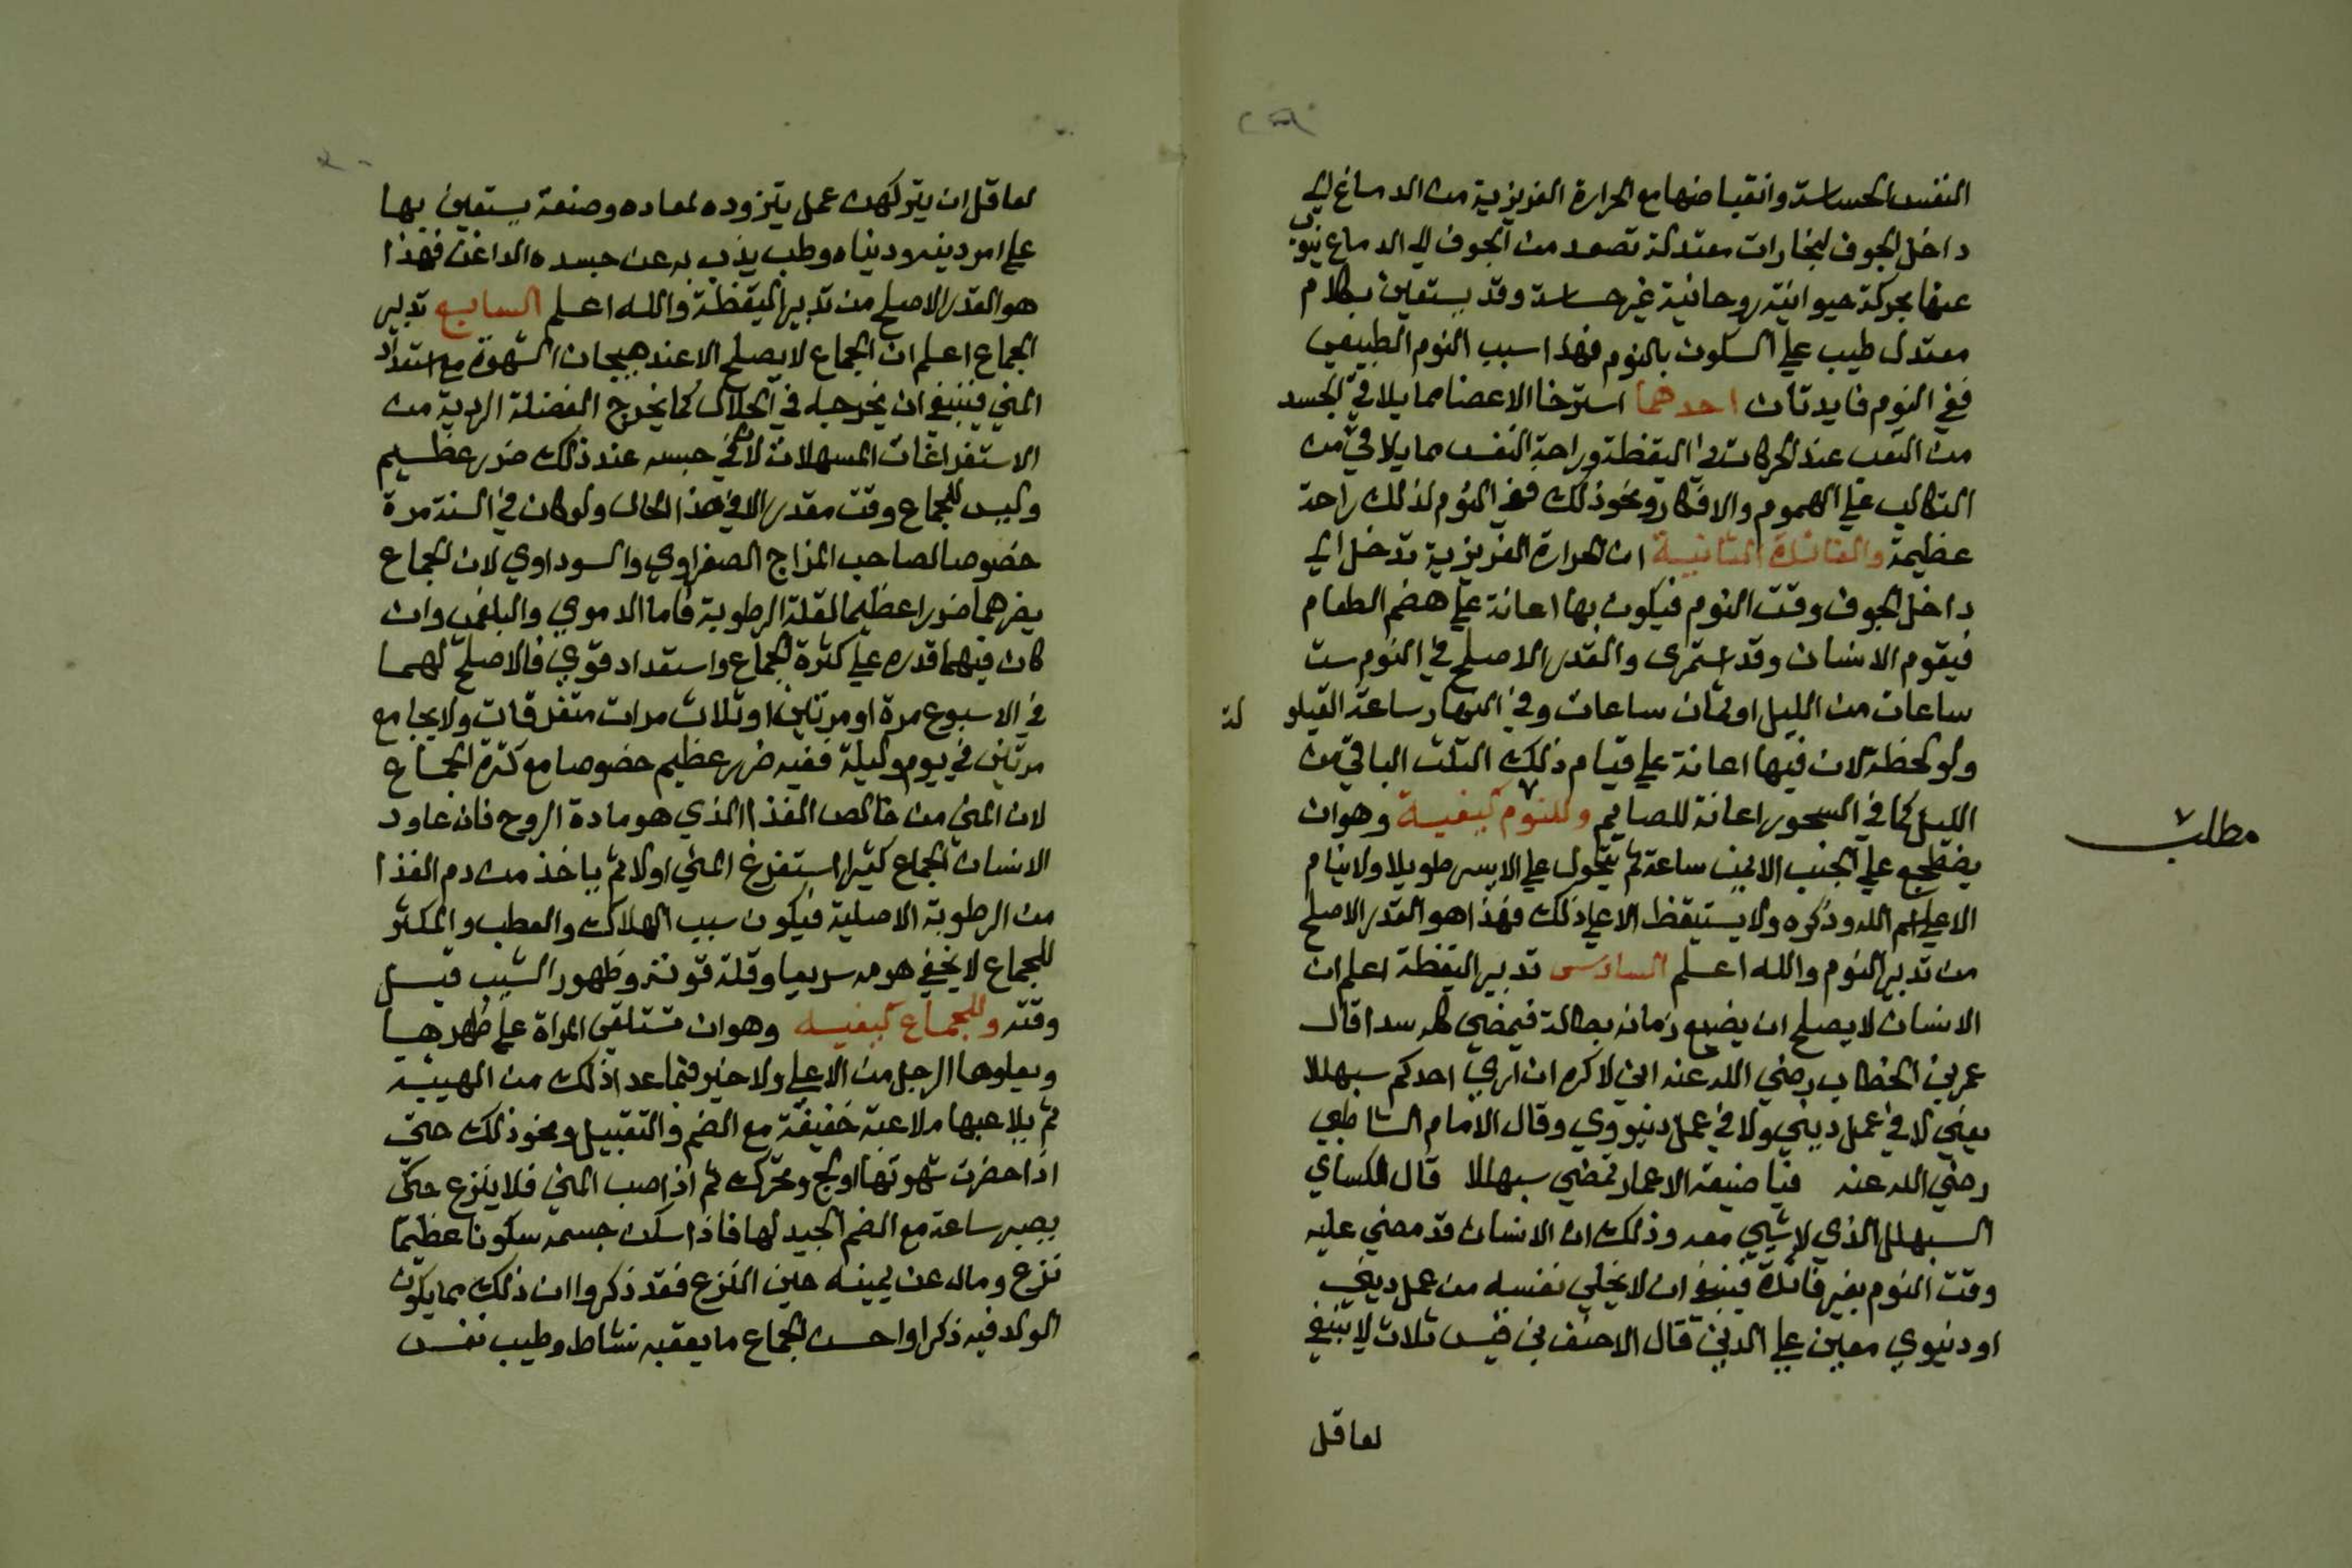 النفس الحساسة وانقباضها مع الحرارة الغريزية من الدماغ الي
داخل الجوف لبخارات معتدلة تصعد من الجوف الي الدماغ
عنها بحركة حيوانية روحانية غير حساسة وقد يستعين بكلام
معتدل طيب علي السكون بالنوم فهذا سبب النوم الطبيعي
ففي النوم فايدتان احدهما استرخا الاعضا مما يلاقي الجسد
من التعب عند الحركات في اليقظة وراحة النفس مما يلاقي من
التكالب علي الهموم والافكار ونحو ذلك ففي النوم لذلك راحة
عظيمة والفائدة الثانية ان الحرارة الغريزية تدخل الي
داخل الجوف وقت النوم فيكون بها اعانة علي هضم الطعام
فيقوم الانسان وقد استمرى والقدر الاصلح في النوم ست
ساعات من الليل او ثمان ساعات وفي النهار ساعة القيلو لة
ولو لحظة لان فيها اعانة علي قيام ذلك الثلث الباقي من
الليل كما في السحور اعانة للصايم وللنوم كيفية وهو ان
مطلب
يضطجع علي الجنب الايمن ساعة ثم يتحول علي الايسر طويلا ولا ينام
الا علي اسم الله وذكره ولا يستيقظ الا علي ذلك فهذا هو القدر الاصلح
من تدبير النوم والله اعلم السادس تدبير اليقظة اعلم ان
الانسان لا يصلح ان يضيع زمانه بطالة فيمضي كله سدا قال
عمر بن الخطاب رضي الله عنه اني لاكره ان اري احدكم سبهللا
يعني لا في عمل ديني ولا في عمل دنيووي وقال الامام الشاطبي
رضي الله عنه فيا ضيعة الاعمار تمضي سبهللا قال الكساي
السبهلل الذي لا شيي معه وذلك ان الانسان قد مضي عليه
وقت النوم بغير فائدة فينبغي ان لا يخلي نفسه من عمل ديني
او دنيوي معين علي الدين قال الاحنف بن قيس ثلاث لا ينبغي
لعاقل
لعاقل ان يتركهن عمل يتزوده لمعاده وصنعة يستعين بها
علي امر دينه ودنياه وطب يذب به عن جسده فهذا
هو القدر الاصلح من تدبير اليقظة والله اعلم السابع تدبير
الجماع اعلم ان الجماع لا يصلح الا عند هيجان الشهوة مع استعداد
المني فينبغي ان يخرجه في الحلال كما يخرج الفضلة الردية من
الاستفراغات المسهلات لان في حبسه عند ذلك ضرر عظيم
وليس للجماع وقت مقدر الا في هذا الحال ولو كان في السنة مرة
خصوصا لصاحب المزاج الصفراوي والسوداوي لان الجماع
يضرهما ضررا عظيما لقلة الرطوبة فاما الدموي والبلغمي وان
كان فيهما قدره علي كثرة الجماع واستعداد قوي فالاصلح لهما
في الاسبوع مرة او مرتين او ثلاث مرات متفرقات ولا يجامع
مرتين في يوم وليلة ففيه ضرر عظيم خصوصا مع كثرة الجماع
لان المني من خالص الغذا الذي هو مادة الروح فان عاود
الانسان الجماع كثيرا استفرغ المني اولا ثم ياخذ من دم الغذا
من الرطوبة الاصلية فيكون سبب الهلاك والعطب والمكثر
للجماع لا يخفي هرمه سريعا وقلة قوته وظهور الشيب قبل
وقته وللجماع كيفيه وهو ان تستلقي المراة علي ظهرها
ويعلوها الرجل من الاعلي ولا خير فيما عدا ذلك من الهيية
ثم يلاعبها ملاعبة خفيفة مع الضم والتقبيل ونحو ذلك حتي
اذا حضرت شهوتها اولج وتحرك ثم اذا صب المني فلا ينزع حتى
يصبر ساعة مع الضم الجيد لها فاذا سكن جسمه سكونا عظيما
نزع ومال عن يمينه حين النزع فقد ذكروا ان ذلك مما يكون
الولد فيه ذكرا واحسن الجماع ما يعقبه نشاط وطيب نفس